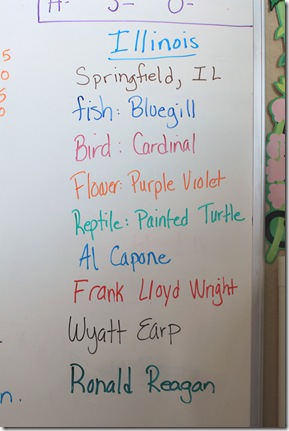 A- S- O-
Illinois
Springfield, IL
fish: Bluegill
Bird: Cardinal
Flower: Purple Violet
Reptile: Painted Turtle
Al Capone
Frank Lloyd Wright
Wyatt Earp
Ronald Reagan